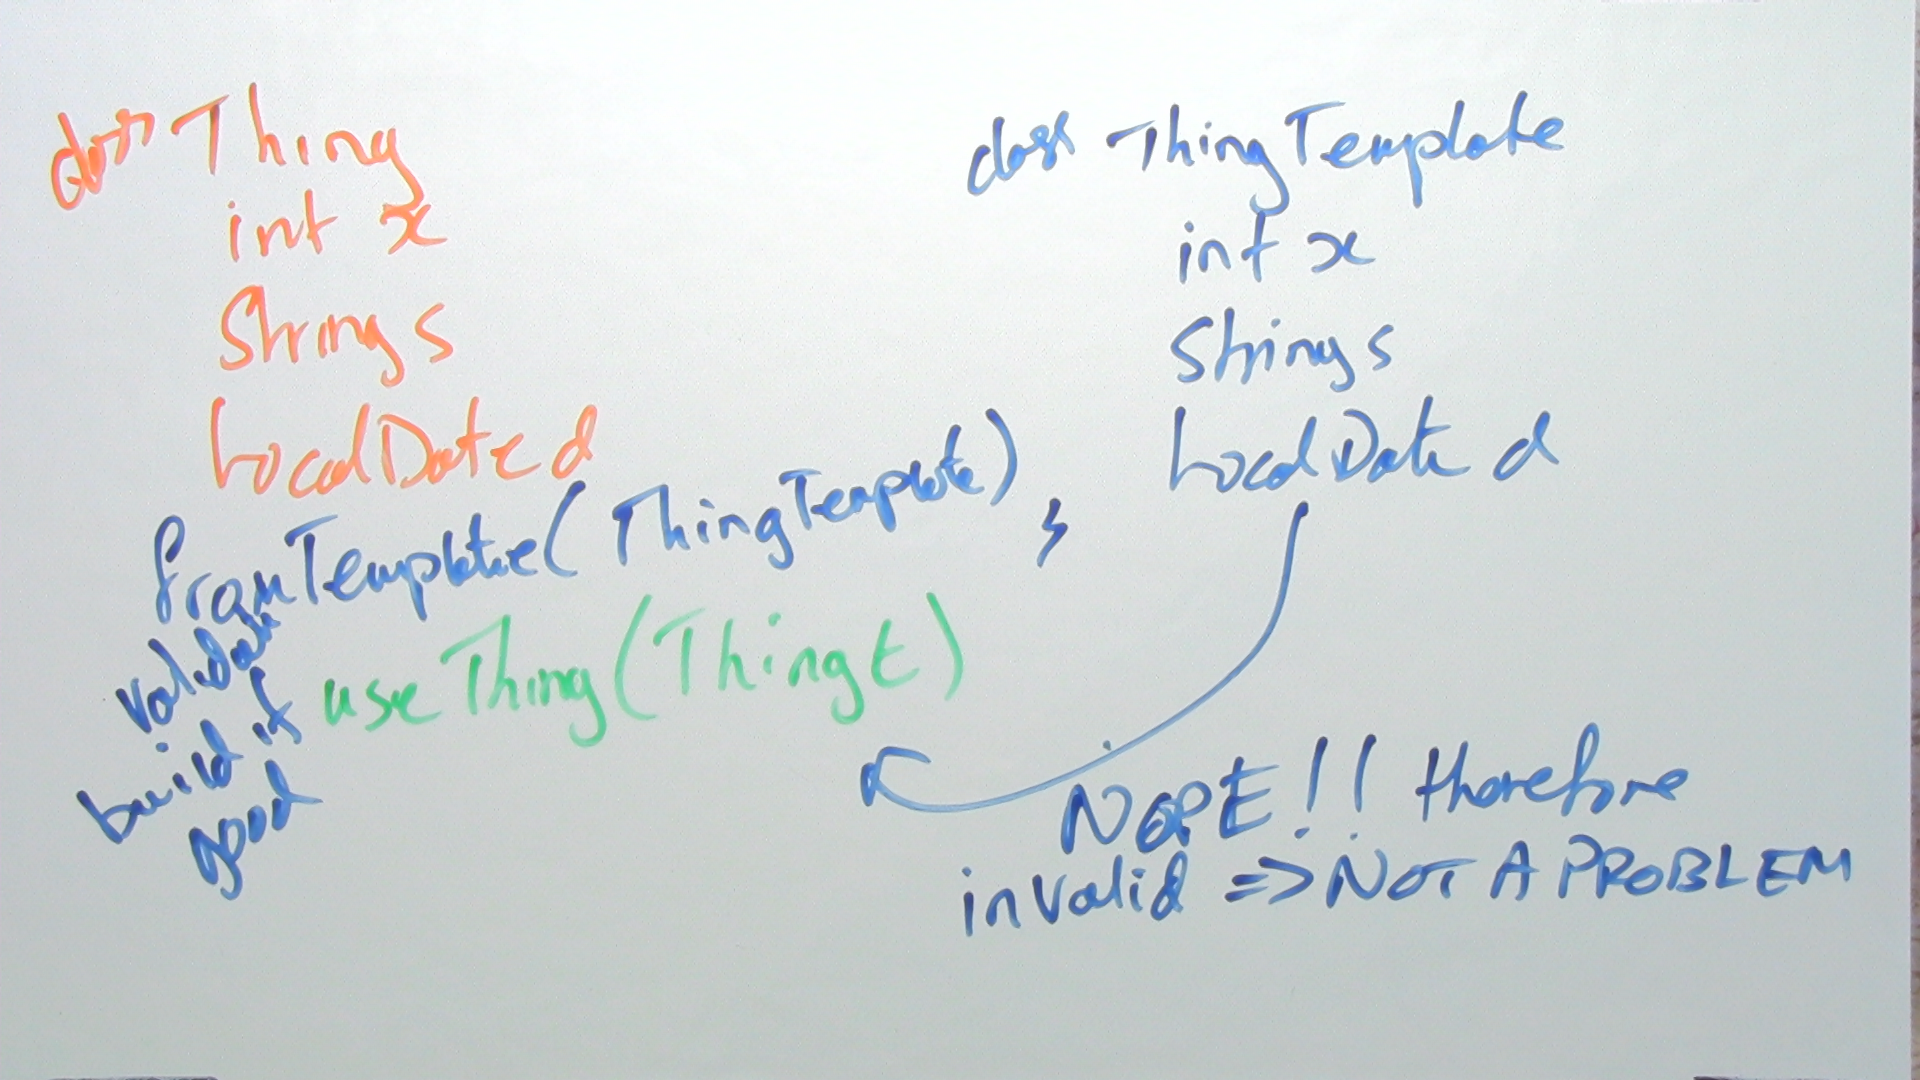 class Thing
int x
String s
LocalDate d
fromTemplate(ThingTemplate)
validate
build if
good
useThing(Thing t)
class ThingTemplate
int x
String s
LocalDate d
NOPE!! therefore
invalid => NOT A PROBLEM